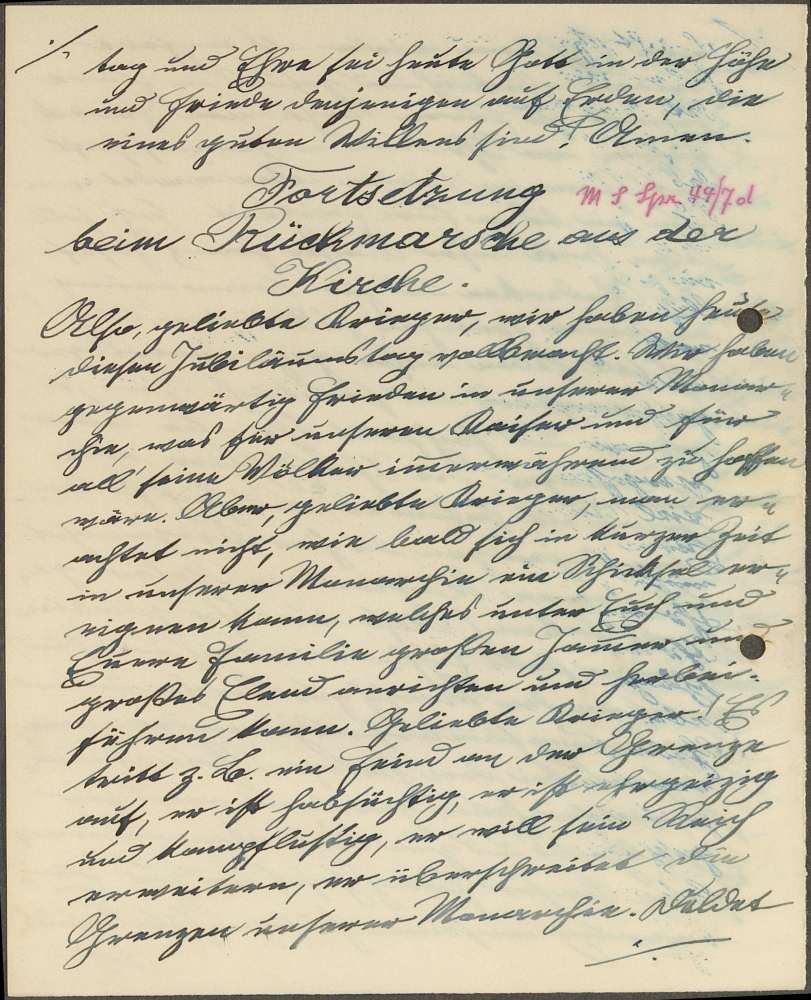 ·/·
tag und Ehre sei heute Gott in der Höhe
und Friede denjenigen auf Erden, die
eines guten Willens sind! Amen.
Fortsetzung
M S Spr. 44/7d
beim Rückmarsche aus der
Kirche.
Also, geliebte Krieger, wir haben heute
diesen Jubiläumstag vollbracht. Wir haben
gegenwärtig Frieden in unserer Monar-
chie, was für unseren Kaiser und für
all' seine Völker im̅erwährend zu hoffen
wäre. Aber, geliebte Krieger, man er-
achtet nicht, wie bald sich in kurzer Zeit
in unserer Monarchie ein Schicksal er-
eignen kann, welches unter Euch und
Euere Familie großen Jam̅er und
großes Elend anrichten und herbei-
führen kann. Geliebte Krieger! Es
tritt z. B. ein Feind an der Grenze
auf, er ist habsüchtig, er ist ehrgeizig
und kampflustig, er will sein Reich
erweitern, er überschreitet die
Grenzen unserer Monarchie. Duldet
·/·